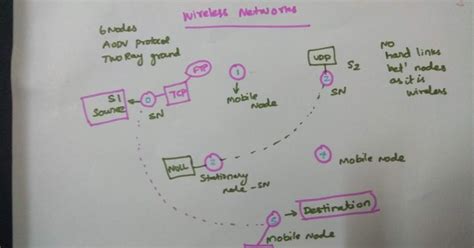 Wireless Networks
6 Nodes
AODV protocol
Two Ray ground
FTP
TCP
S1
Source
0
SN
1
Mobile
Node
UDP
S2
2
SN
No
hard links
bet' nodes
as it is
wireless
NULL
Stationary
node - SN
4
Mobile Node
Destination
Mobile Node